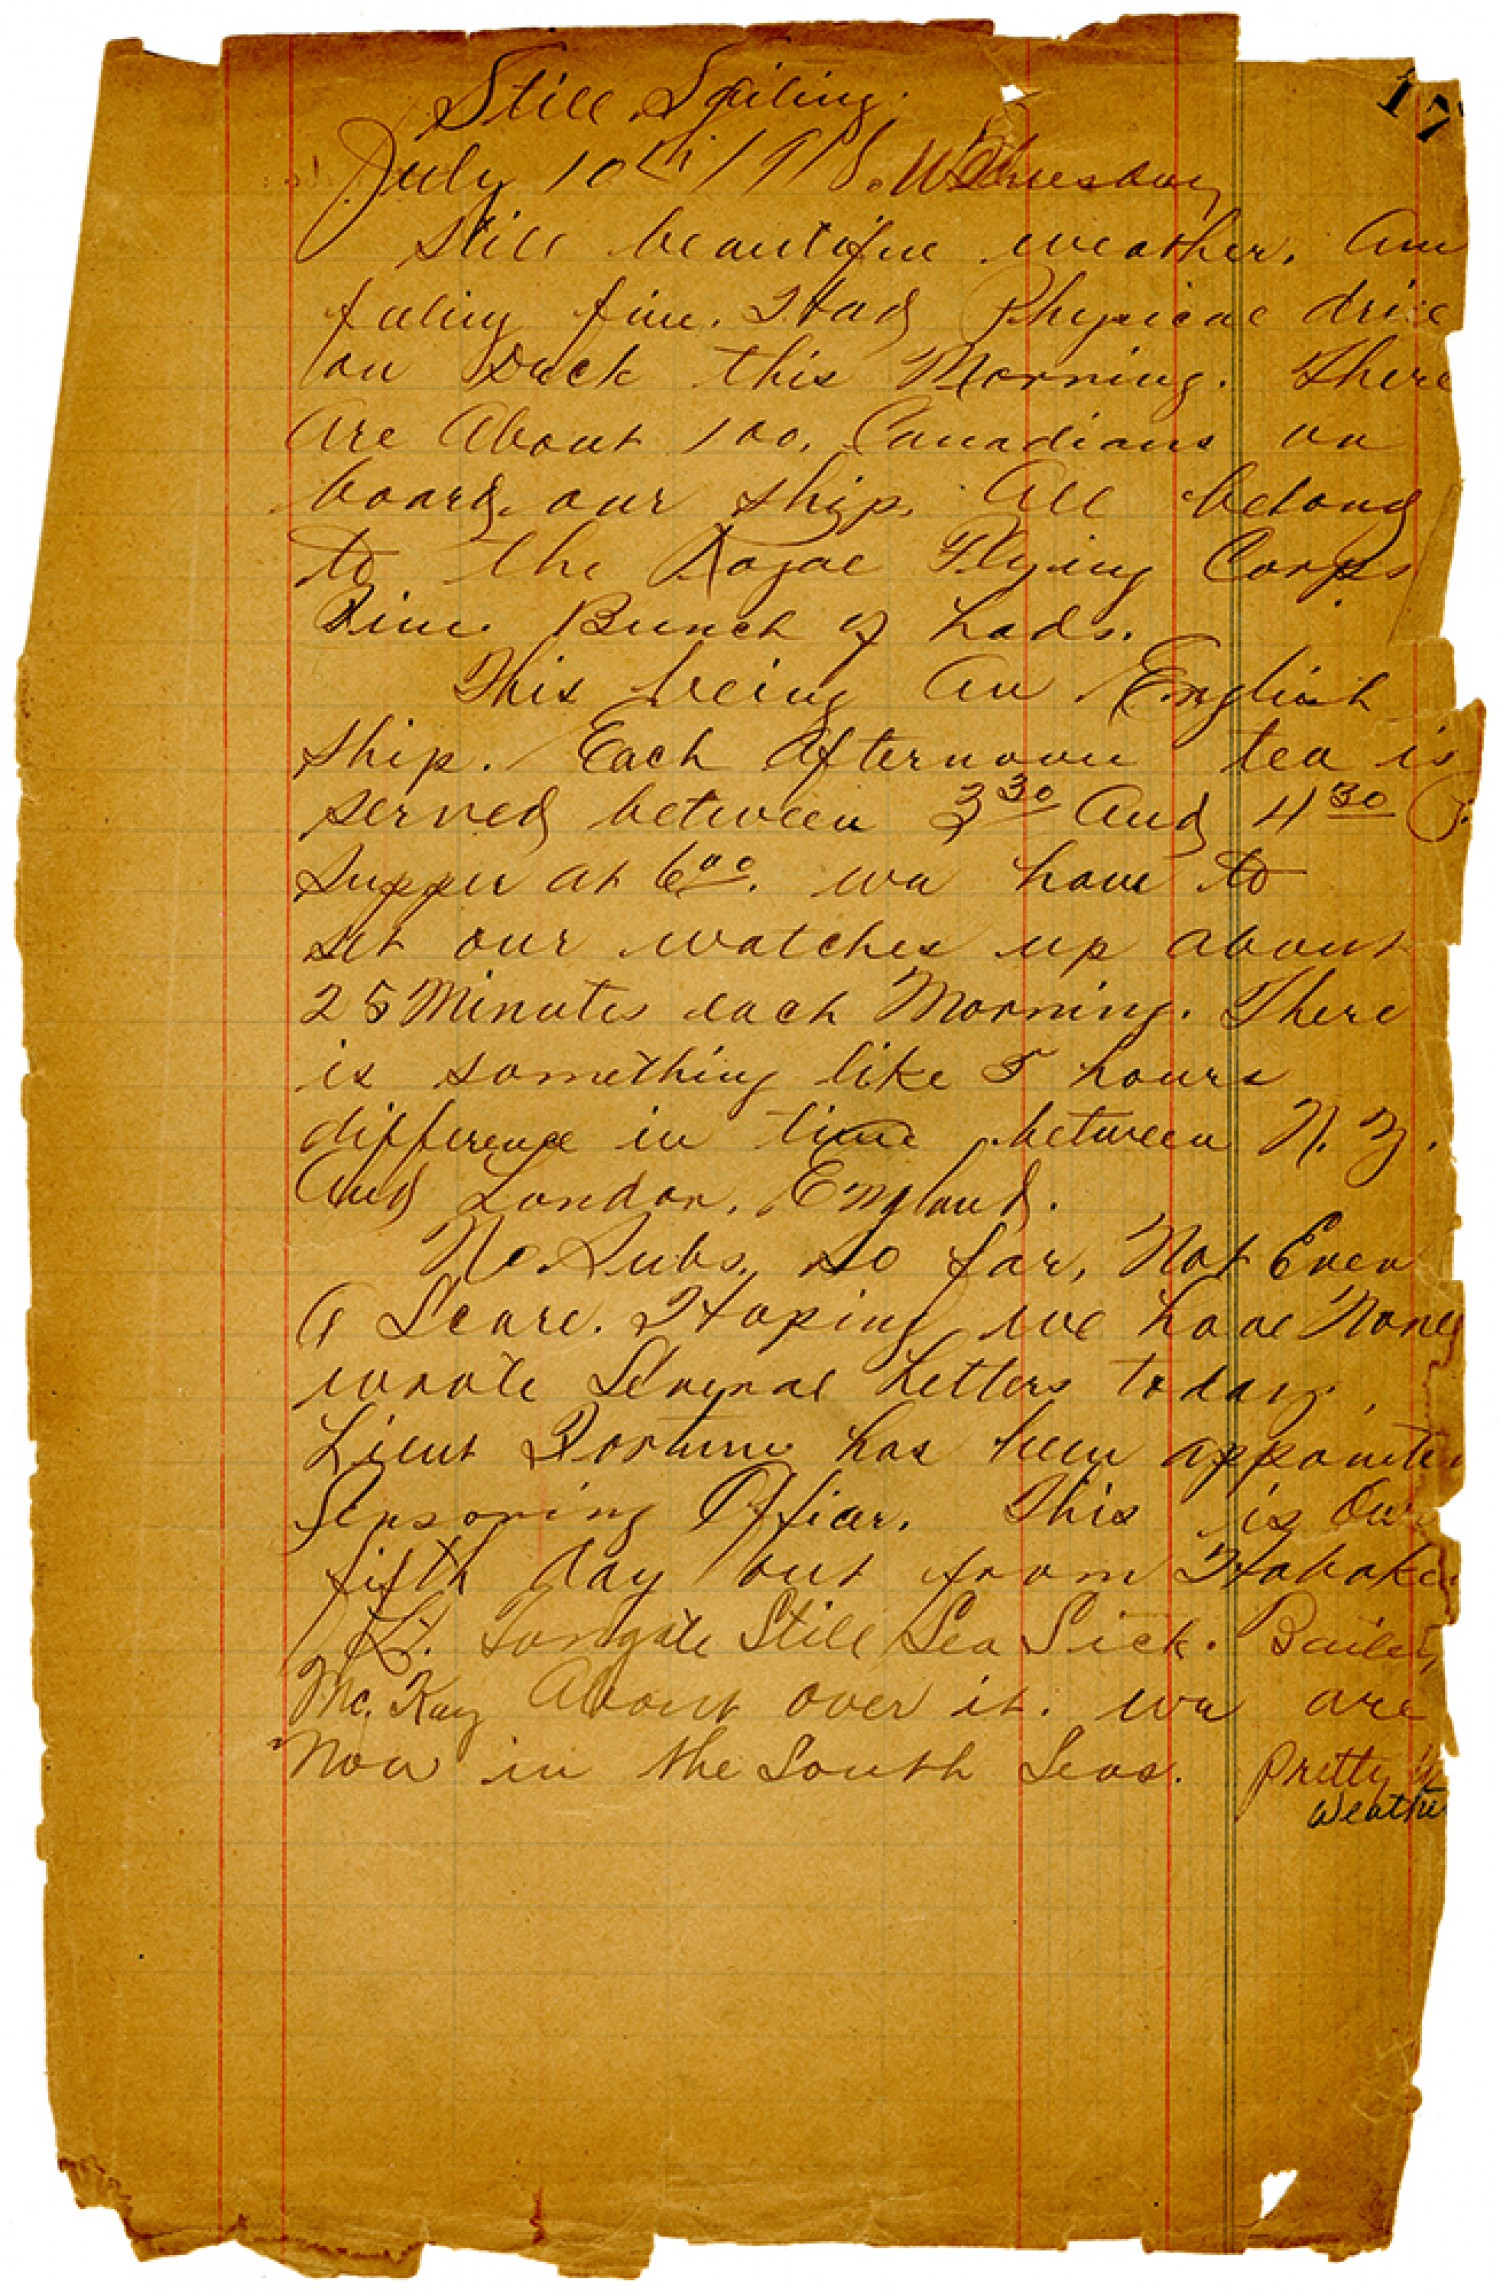 17
Still Sailing.
July 10th 1918. Wednesday
Still beautiful weather. Am
feeling fine. Had Physical drill
on Deck this Morning. There
Are About 100, Canadians on
board our ship. All belong
to the Royal Flying Corps
Fine Bunch of Lads.
This being An English
ship. Each Afternoon tea is
served between 3 30 And 4 30
Supper at 6 00. we have to
set our watches up about
25 Minutes each Morning. There
is something like 5 hours
difference in time between N.Y.
And London, England.
No Subs. so far, Not Even
A Scare. Hoping we have None
wrote Several Letters today.
Lieut has been appointed
Sensoring Officer. This is Our
fifth day out from Hoboken
Lt. Songate Still Sea Sick. Bailey
Mc.Kay About over it. we are
Now in the South Seas. Pretty
Weather